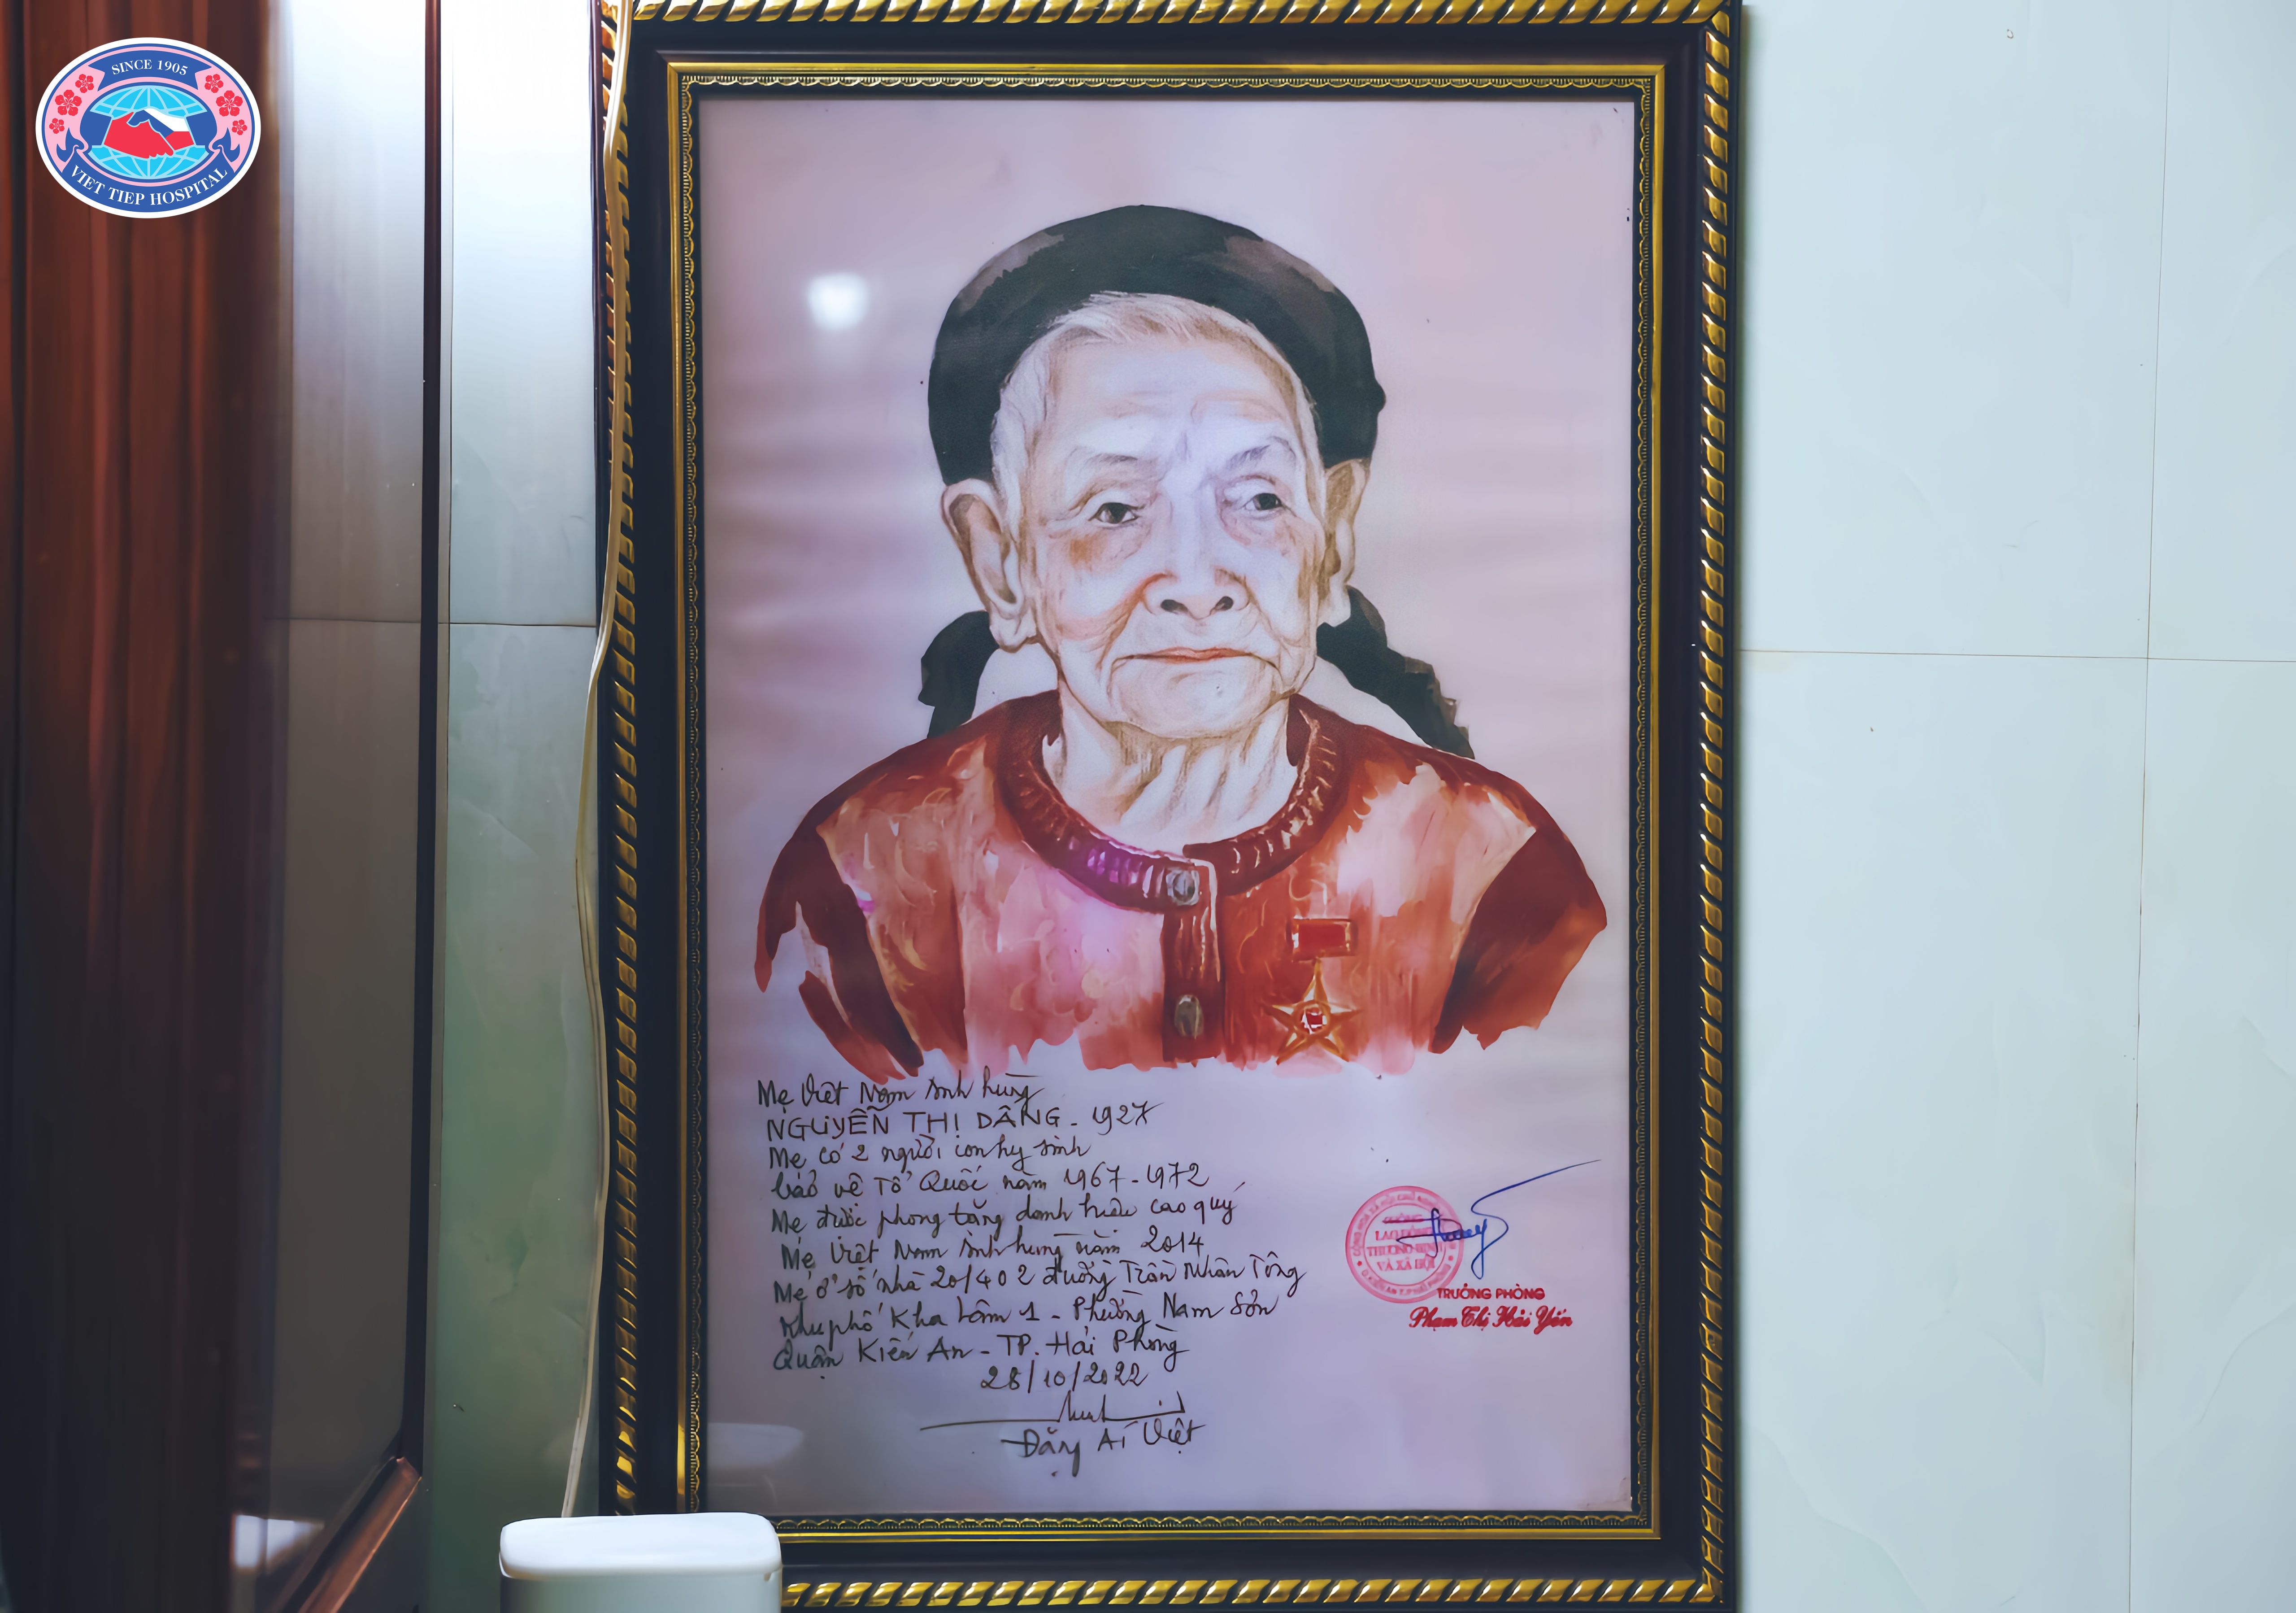 SINCE 1905
VIET TIEP HOSPITAL
Mẹ Việt Nam Anh hùng
NGUYỄN THỊ DÂNG - 1927
Mẹ có 2 người con hy sinh
bảo vệ Tổ Quốc năm 1967-1972
Mẹ được phong tặng danh hiệu cao quý
Mẹ Việt Nam Anh hùng năm 2014
Mẹ ở số nhà 20/402 đường Trần Nhân Tông
Khu phố Kha Lâm 1 - Phường Nam Sơn
Quận Kiến An - TP. Hải Phòng
28/10/2022
Đặng Ái Việt
PHÒNG
LAO ĐỘNG
THƯƠNG BINH
VÀ XÃ HỘI
TRƯỞNG PHÒNG
Phạm Thị Hải Yến